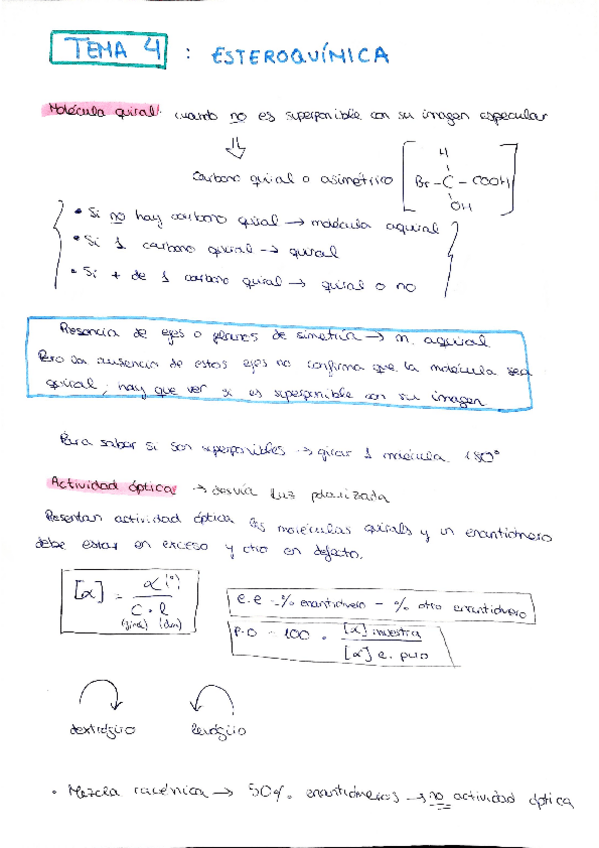 TEMA 4 : ESTEROQUÍMICA
Molécula quiral: cuando no es superponible con su imagen especular
⇓
Carbono quiral o asimétrico
H
Br - C - COOH
OH
• Si no hay carbono quiral → molécula aquiral
• Si 1 carbono quiral → quiral
• Si + de 1 carbono quiral → quiral o no
Presencia de ejes o planos de simetría → m. aquiral.
Pero la ausencia de estos ejes no confirma que la molécula sea
quiral; hay que ver si es superponible con su imagen
Para saber si son superponibles → girar 1 molécula 180°
Actividad óptica: → desvía luz polarizada
Presentan actividad óptica las moléculas quirales y un enantiómero
debe estar en exceso y otro en defecto.
[α] = α(°) / C · l
(g/mL) (dm)
e.e = % enantiómero - % otro enantiómero
P.O = 100 · [α] muestra / [α] e. puro
dextrógiro levógiro
• Mezcla racémica → 50% enantiómeros → no actividad óptica